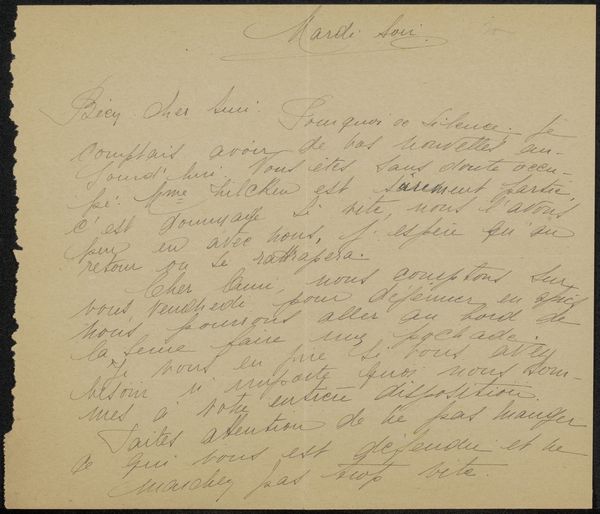 Mardi soir.
Bien cher Ami. Pourquoi ce silence. Je
comptais avoir de vos nouvelles au-
jourd'hui. Vous êtes sans doute occu-
pé. Mme Zilcken est sûrement partie,
c'est dommage si vite, nous l'avons
peu eu avec nous, j'espère qu'au
retour on se rattrapera.
Cher Ami, nous comptons sur
vous Vendredi pour déjeuner, en après
nous pourrons aller au bord de
la Seine faire une pochade.
Je vous en prie si vous avez
besoin n'importe quoi nous som-
mes à votre entière disposition.
Faites attention de ne pas manger
ce qui vous est défendu et ne
marchez pas trop vite.